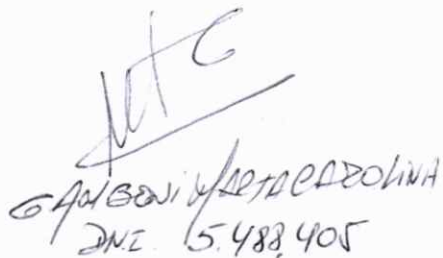 MTC
GAMBONI MARTA CAROLINA
DNI. 5.488.405